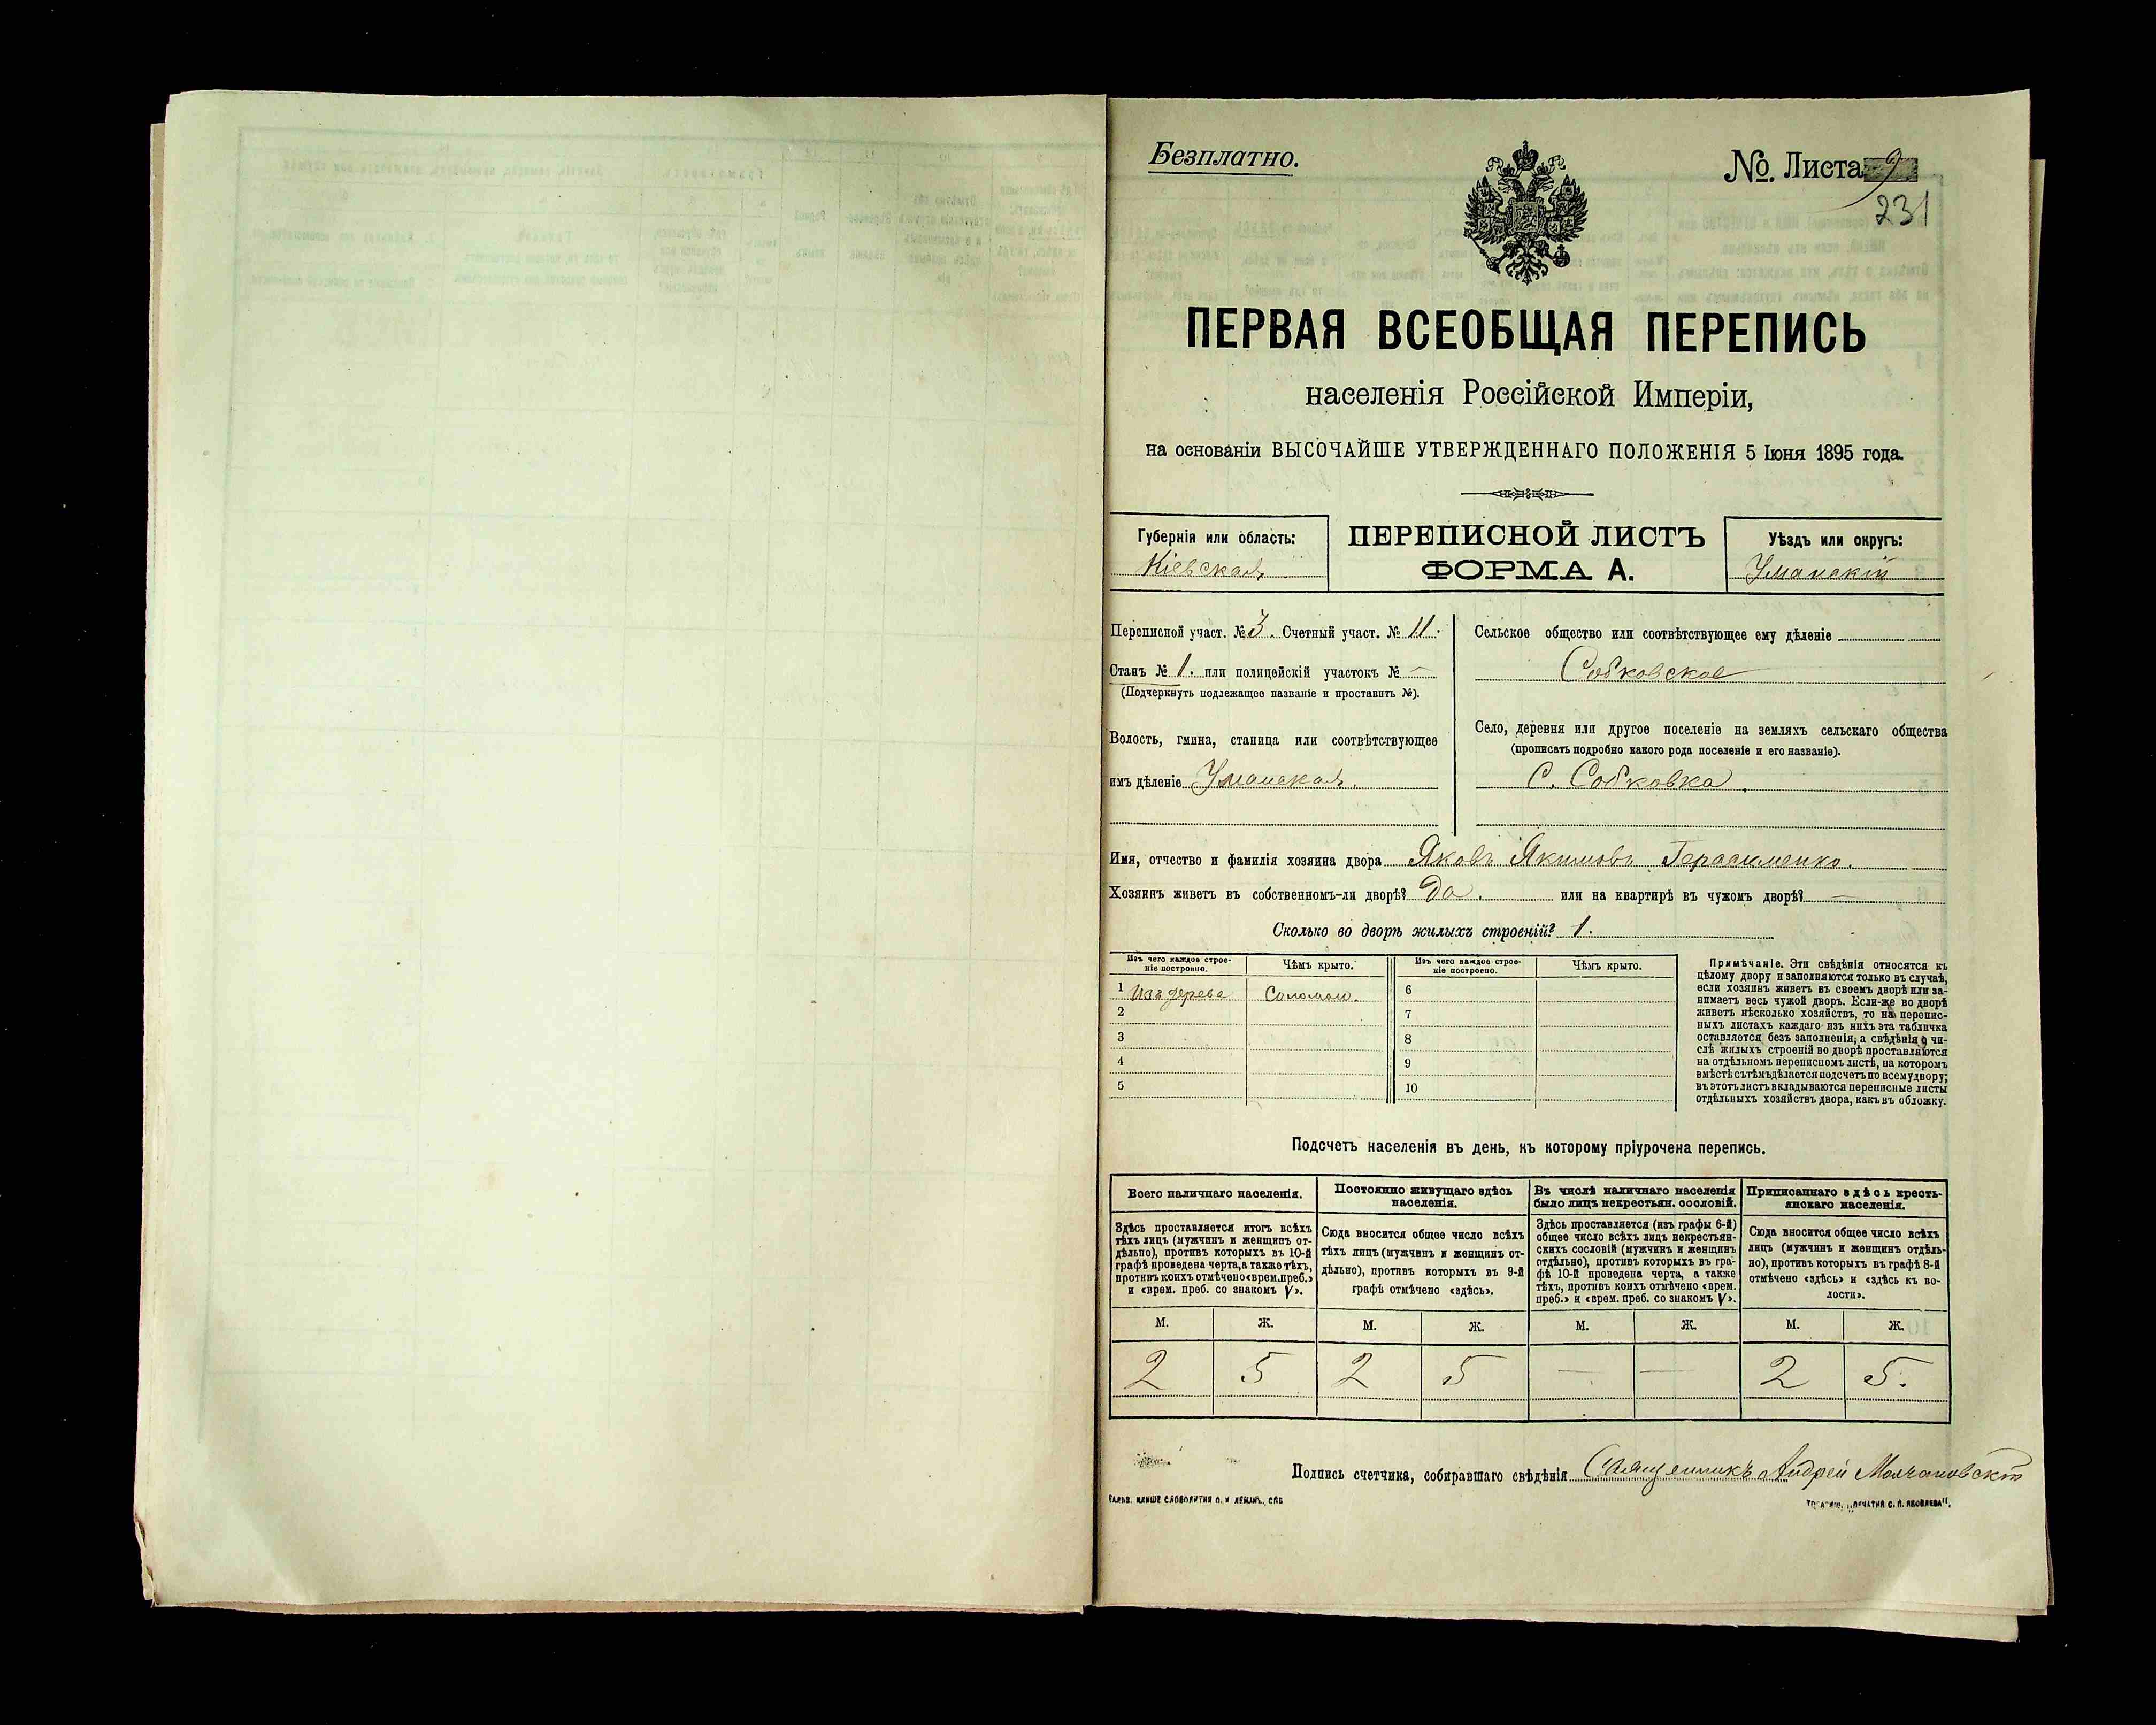 Безплатно.
№. Листа 9
231
ПЕРВАЯ ВСЕОБЩАЯ ПЕРЕПИСЬ
населенія Россійской Имперіи,
на основаніи ВЫСОЧАЙШЕ УТВЕРЖДЕННАГО ПОЛОЖЕНІЯ 5 Іюня 1895 года.
Губернія или область:
Кіевская
ПЕРЕПИСНОЙ ЛИСТЪ
ФОРМА А.
Уѣздъ или округъ:
Уманскій
Переписной участ. № 3. Счетный участ. № 11.
Станъ № 1. или полицейскій участокъ № —
(Подчеркнуть подлежащее названіе и проставить №).
Волость, гмина, станица или соотвѣтствующее
имъ дѣленіе Уманская.
Сельское общество или соотвѣтствующее ему дѣленіе
Собковское
Село, деревня или другое поселеніе на земляхъ сельскаго общества
(прописать подробно какого рода поселеніе и его названіе).
С. Собковка.
Имя, отчество и фамилія хозяина двора Яковъ Якимовъ Герасименко.
Хозяинъ живетъ въ собственномъ-ли дворѣ? Да. или на квартирѣ въ чужомъ дворѣ? —
Сколько во дворѣ жилыхъ строеній? 1.
Изъ чего каждое строе-
ніе построено.
Чѣмъ крыто.
Изъ чего каждое строе-
ніе построено.
Чѣмъ крыто.
1 Изъ дерева Соломою. 6
2 7
3 8
4 9
5 10
Примѣчаніе. Эти свѣдѣнія относятся къ
цѣлому двору и заполняются только въ случаѣ,
если хозяинъ живетъ въ своемъ дворѣ или за-
нимаетъ весь чужой дворъ. Если-же во дворѣ
живетъ нѣсколько хозяйствъ, то на перепис-
ныхъ листахъ каждаго изъ нихъ эта табличка
оставляется безъ заполненія, а свѣдѣнія о чи-
слѣ жилыхъ строеній во дворѣ проставляются
на отдѣльномъ переписномъ листѣ, на которомъ
вмѣстѣ съ тѣмъ дѣлается подсчетъ по всему двору;
въ этотъ листъ вкладываются переписные листы
отдѣльныхъ хозяйствъ двора, какъ въ обложку.
Подсчетъ населенія въ день, къ которому пріурочена перепись.
Всего наличнаго населенія.
Здѣсь проставляется итогъ всѣхъ
тѣхъ лицъ (мужчинъ и женщинъ от-
дѣльно), противъ которыхъ въ 10-й
графѣ проведена черта, а также тѣхъ,
противъ коихъ отмѣчено «врем. преб.»
и «врем. преб. со знакомъ V».
Постоянно живущаго здѣсь
населенія.
Сюда вносится общее число всѣхъ
тѣхъ лицъ (мужчинъ и женщинъ от-
дѣльно), противъ которыхъ въ 9-й
графѣ отмѣчено «здѣсь».
Въ числѣ наличнаго населенія
было лицъ некрестьян. сословій.
Здѣсь проставляется (изъ графы 6-й)
общее число всѣхъ лицъ некрестьян-
скихъ сословій (мужчинъ и женщинъ
отдѣльно), противъ которыхъ въ гра-
фѣ 10-й проведена черта, а также
тѣхъ, противъ коихъ отмѣчено «врем.
преб.» и «врем. преб. со знакомъ V».
Приписаннаго здѣсь кресть-
янскаго населенія.
Сюда вносится общее число всѣхъ
лицъ (мужчинъ и женщинъ отдѣль-
но), противъ которыхъ въ графѣ 8-й
отмѣчено «здѣсь» и «здѣсь къ во-
лости».
М. Ж. М. Ж. М. Ж. М. Ж.
2 5 2 5 — — 2 5.
Подпись счетчика, собиравшаго свѣдѣнія Священникъ Андрей Молчановскій
ГАЛЬВ. КЛИШЕ СЛОВОЛИТНИ О. И. ЛЕМАНЪ, СПБ
ТОВАРИЩ. „ПЕЧАТНЯ С. П. ЯКОВЛЕВА".